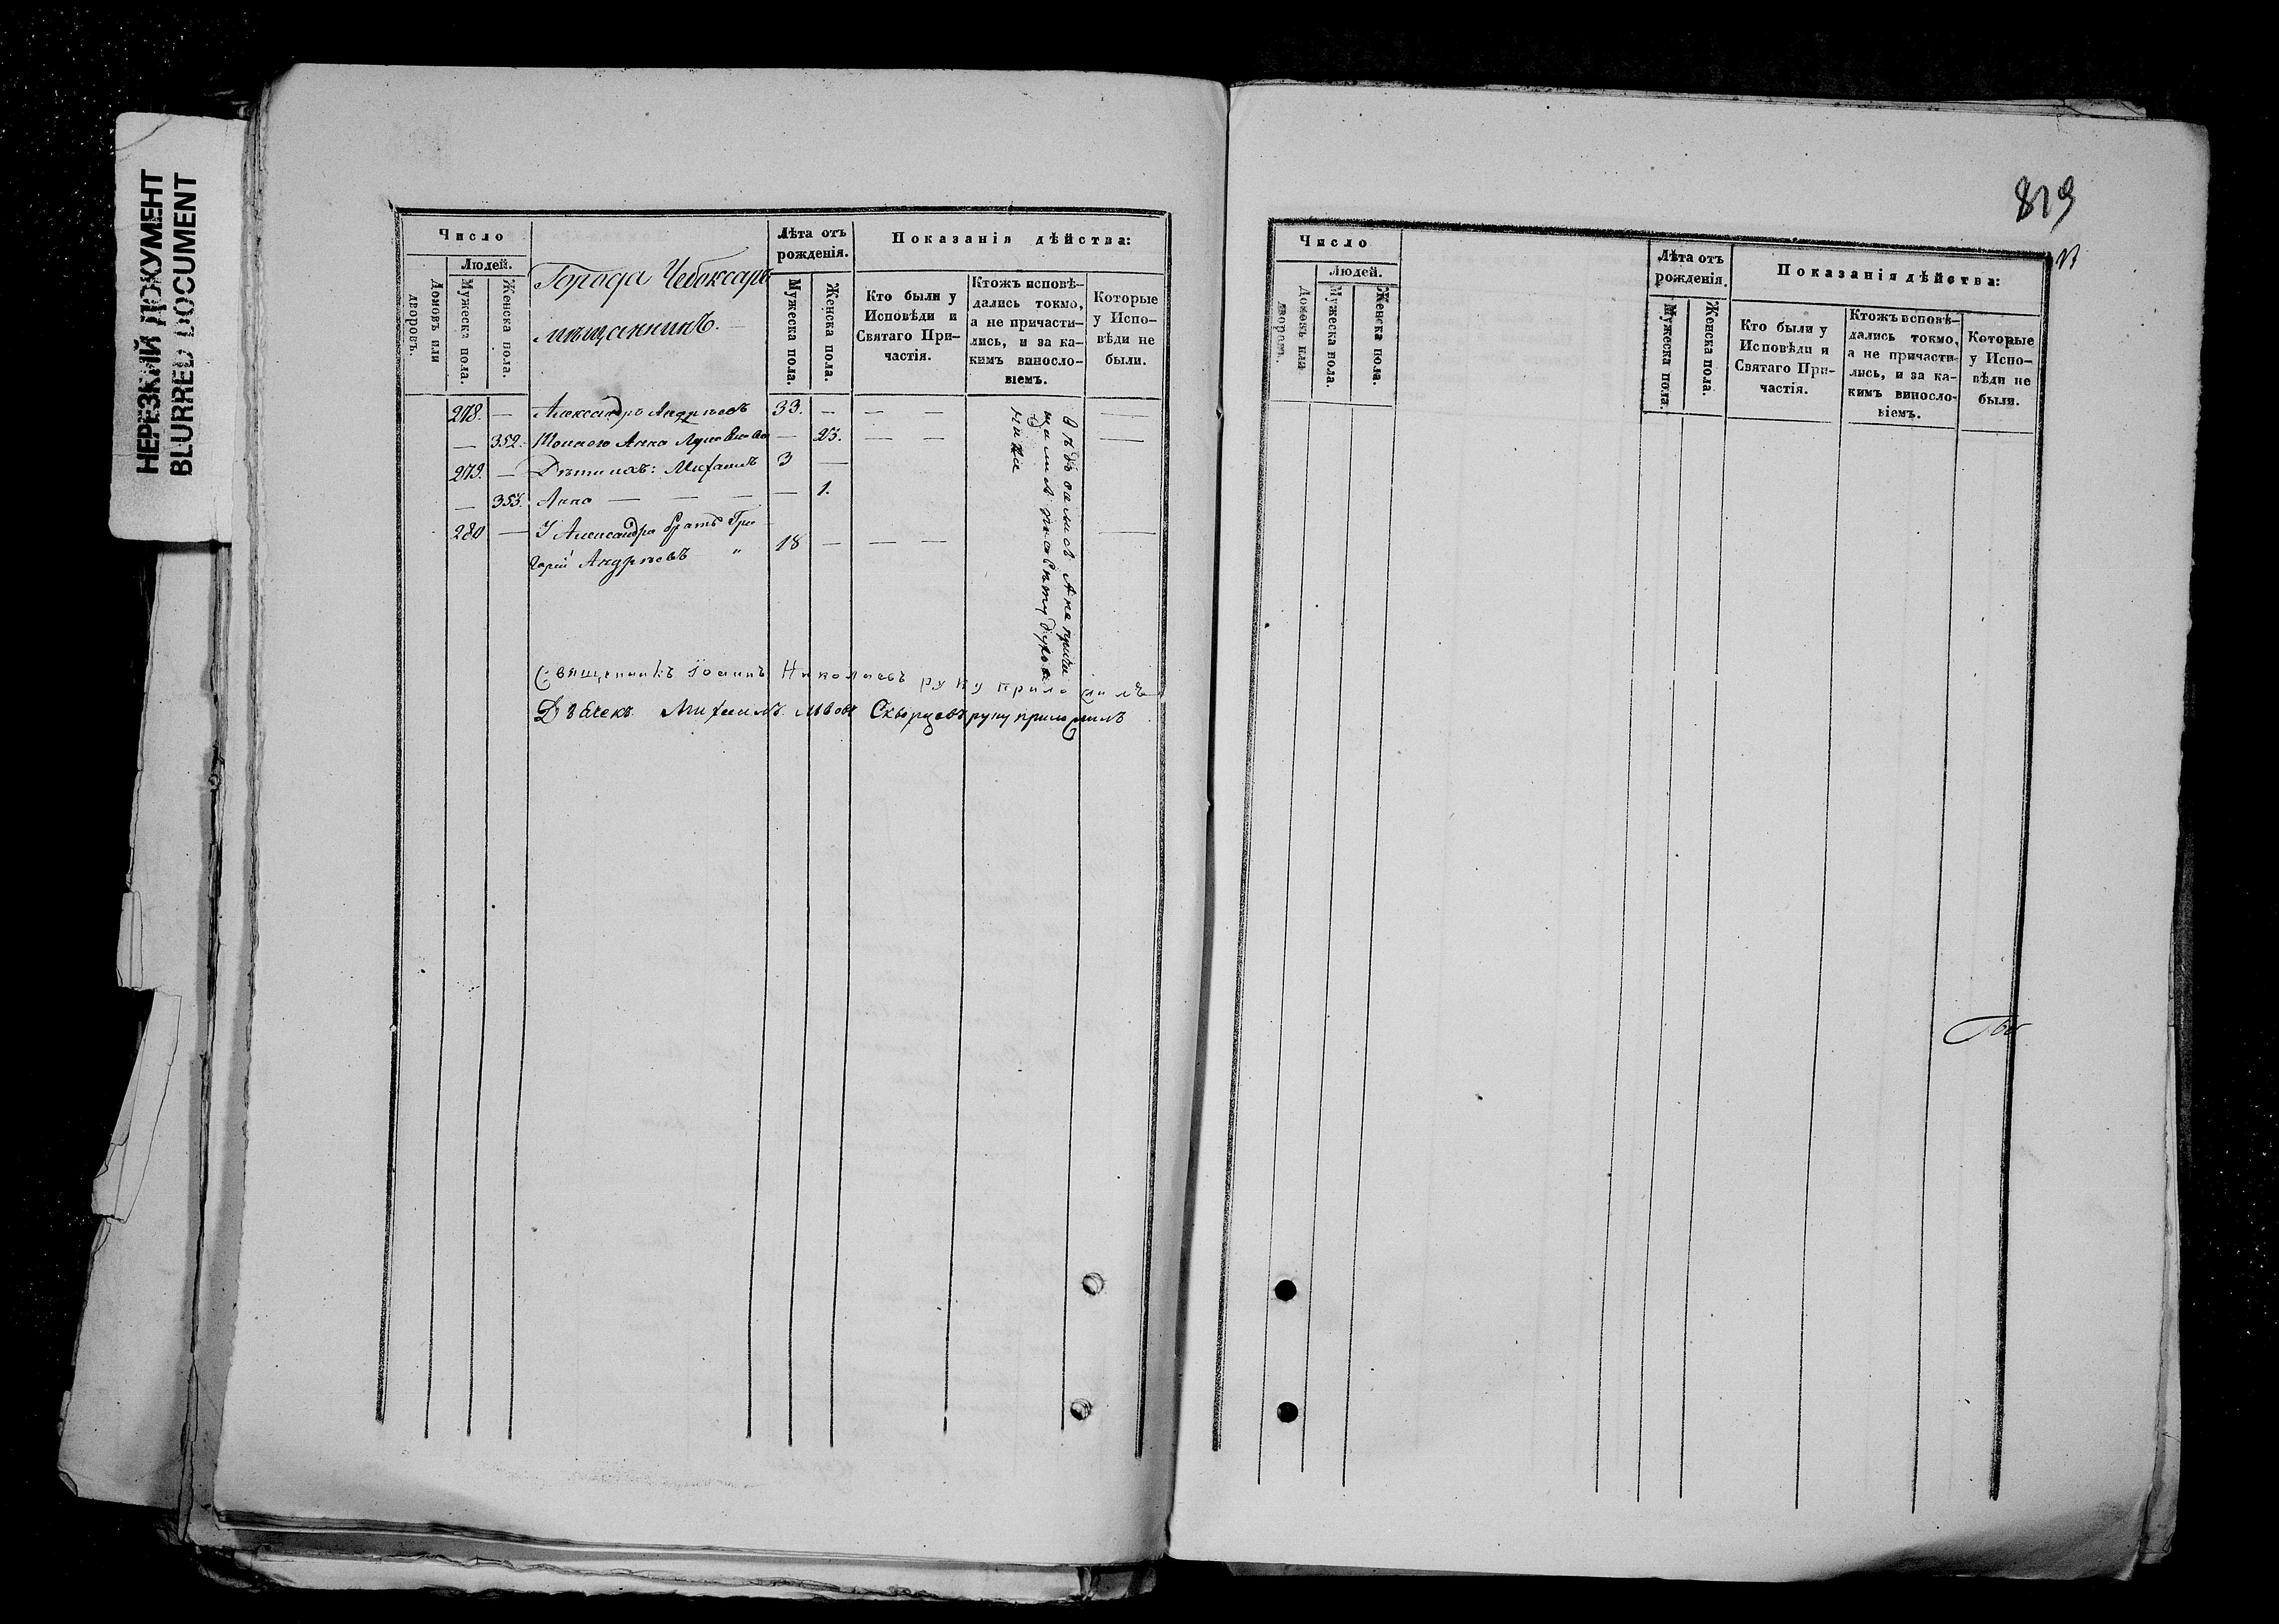 НЕРЕЗКИЙ ДОКУМЕНТ
BLURRED DOCUMENT
Число
Людей.
Домовъ или дворовъ.
Мужеска пола.
Женска пола.
Города Чебоксаръ
мѣщанинъ.
Лѣта отъ
рожденія.
Мужеска пола.
Женска пола.
Показанія дѣйства:
Кто были у
Исповѣди и
Святаго При-
частія.
Ктожъ исповѣ-
дались токмо,
а не причасти-
лись, и за ка-
кимъ виносло-
віемъ.
Которые
у Испо-
вѣди не
были.
278. — Александръ Андреевъ 33. — — —
— 352. Жена его Анна — 23. — — —
279. — Дѣти ихъ: Михаилъ 3 —
— 353. Анна — — — — 1.
280 — У Александра братъ Гри
горій Андреевъ " 18 — — — —
Священникъ Іоаннъ Николаевъ руку приложилъ
Дьячекъ Михаилъ Львовъ Скворцовъ руку приложилъ
819
Число
Людей.
Домовъ или дворовъ.
Мужеска пола.
Женска пола.
Лѣта отъ
рожденія.
Мужеска пола.
Женска пола.
Показанія дѣйства:
Кто были у
Исповѣди и
Святаго При-
частія.
Ктожъ исповѣ-
дались токмо,
а не причасти-
лись, и за ка-
кимъ виносло-
віемъ.
Которые
у Испо-
вѣди не
были.